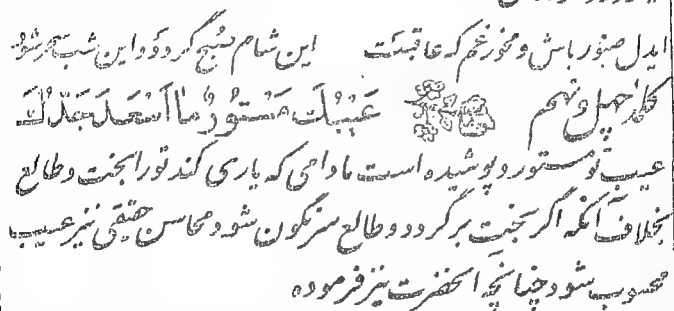 ایدل صبور باش و مخور غم که عاقبت این شام صبح گردد و این شب سحر شود
کلمه چهل و نهم عَیْبُكَ مَسْتُورٌ مٰا اَسْعَدَ جَدُّكَ
عیب تو مستور و پوشیده است مادامی که یاری کند تو را بخت و طالع
بخلاف آنکه اگر بخت برگردد و طالع سرنگون شود محاسن حقیقی نیز عیب
محسوب شود چنانچه آنحضرت نیز فرموده